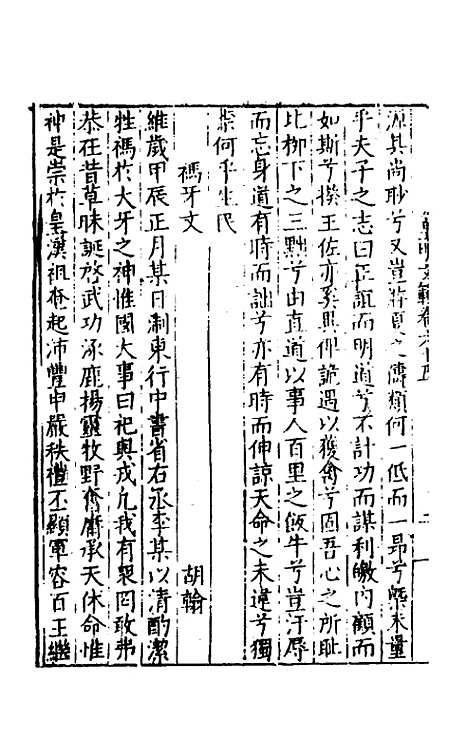 源其尚眇兮又豈許負之儔類何一低而一昂兮槩未量
乎夫子之志曰正誼而明道兮不計功而謀利皦内顧而
如斯兮揆王佐亦奚異俾詭遇以獲禽兮固吾心之所耻
比栁下之三黜兮由直道以事人百里之飯牛兮豈汙辱
而忘身道有時而詘兮亦有時而伸諒天命之未違兮獨
柰何乎生民
禡牙文
胡翰
維歲甲辰正月某日制東行中書省右丞李某以清酌潔
牲禡於大牙之神惟國大事曰祀與戎凡我有衆罔敢弗
恭在昔草昧誕啓武功涿鹿揚靈牧野奮庸承天休命惟
神是崇於皇漢祖奮起沛豐中嚴秩禮丕顯軍容百王繼
皇明文範卷六十五